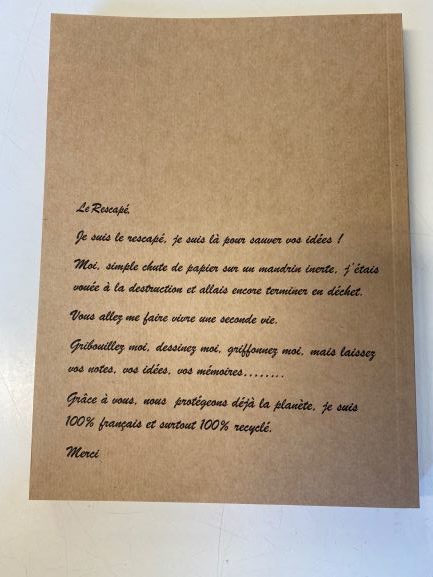 Le Rescapé.
Je suis le rescapé, je suis là pour sauver vos idées !
Moi, simple chute de papier sur un mandrin inerte, j'étais
vouée à la destruction et allais encore terminer en déchet.
Vous allez me faire vivre une seconde vie.
Gribouillez moi, dessinez moi, griffonnez moi, mais laissez
vos notes, vos idées, vos mémoires........
Grâce à vous, nous protégeons déjà la planète, je suis
100% français et surtout 100% recyclé.
Merci